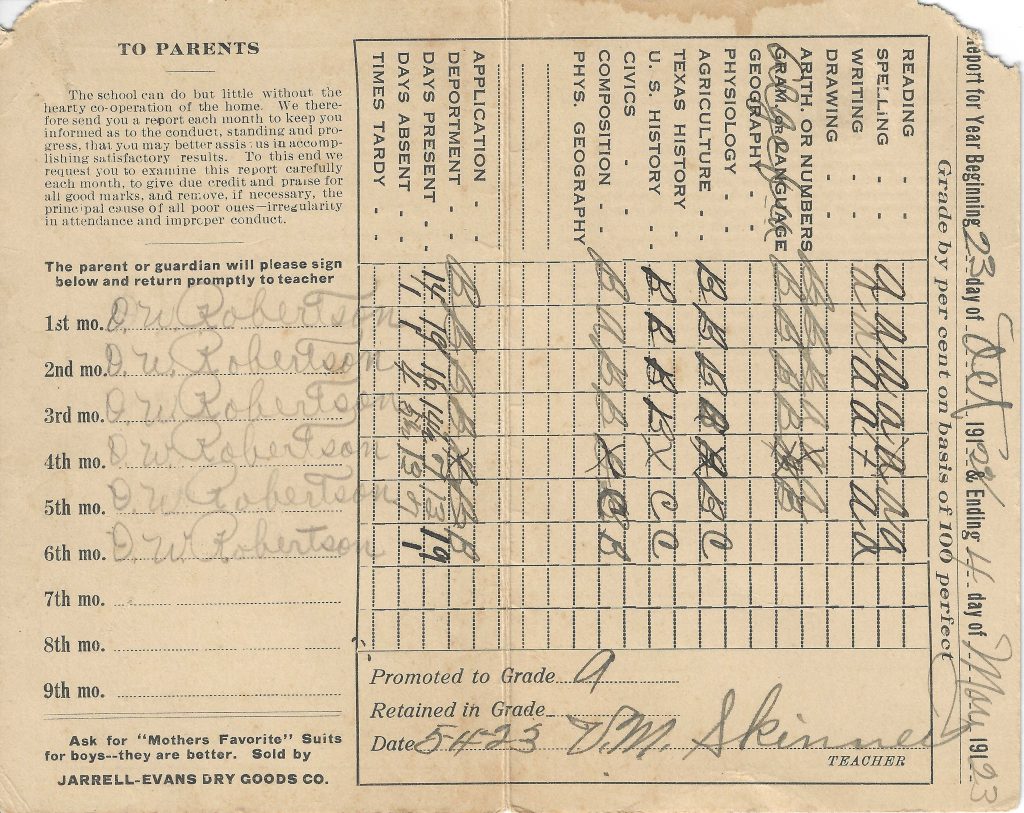 TO PARENTS
The school can do but little without the
hearty co-operation of the home. We there-
fore send you a report each month to keep you
informed as to the conduct, standing and pro-
gress, that you may better assist us in accom-
plishing satisfactory results. To this end we
request you to examine this report carefully
each month, to give due credit and praise for
all good marks, and remove, if necessary, the
principal cause of all poor ones—irregularity
in attendance and improper conduct.
The parent or guardian will please sign
below and return promptly to teacher
1st mo. D. W. Robertson
2nd mo. D. W. Robertson
3rd mo. D. W. Robertson
4th mo. D. W. Robertson
5th mo. D. W. Robertson
6th mo. D. W. Robertson
7th mo.
8th mo.
9th mo.
Ask for "Mothers Favorite" Suits
for boys--they are better. Sold by
JARRELL-EVANS DRY GOODS CO.
Report for Year Beginning 23 day of Oct, 1912 & Ending 4 day of May 191 23
Grade by per cent on basis of 100 perfect
READING
SPELLING
WRITING
DRAWING
ARITH. OR NUMBERS
Algebra
GRAM. OR LANGUAGE
GEOGRAPHY
PHYSIOLOGY
AGRICULTURE B B B B X B C
TEXAS HISTORY
U. S. HISTORY B B B B X C C
CIVICS
COMPOSITION
PHYS. GEOGRAPHY
APPLICATION
DEPORTMENT
DAYS PRESENT
DAYS ABSENT
TIMES TARDY
Promoted to Grade 9
Retained in Grade
Date 5-4-23 V. M. Skinner
TEACHER